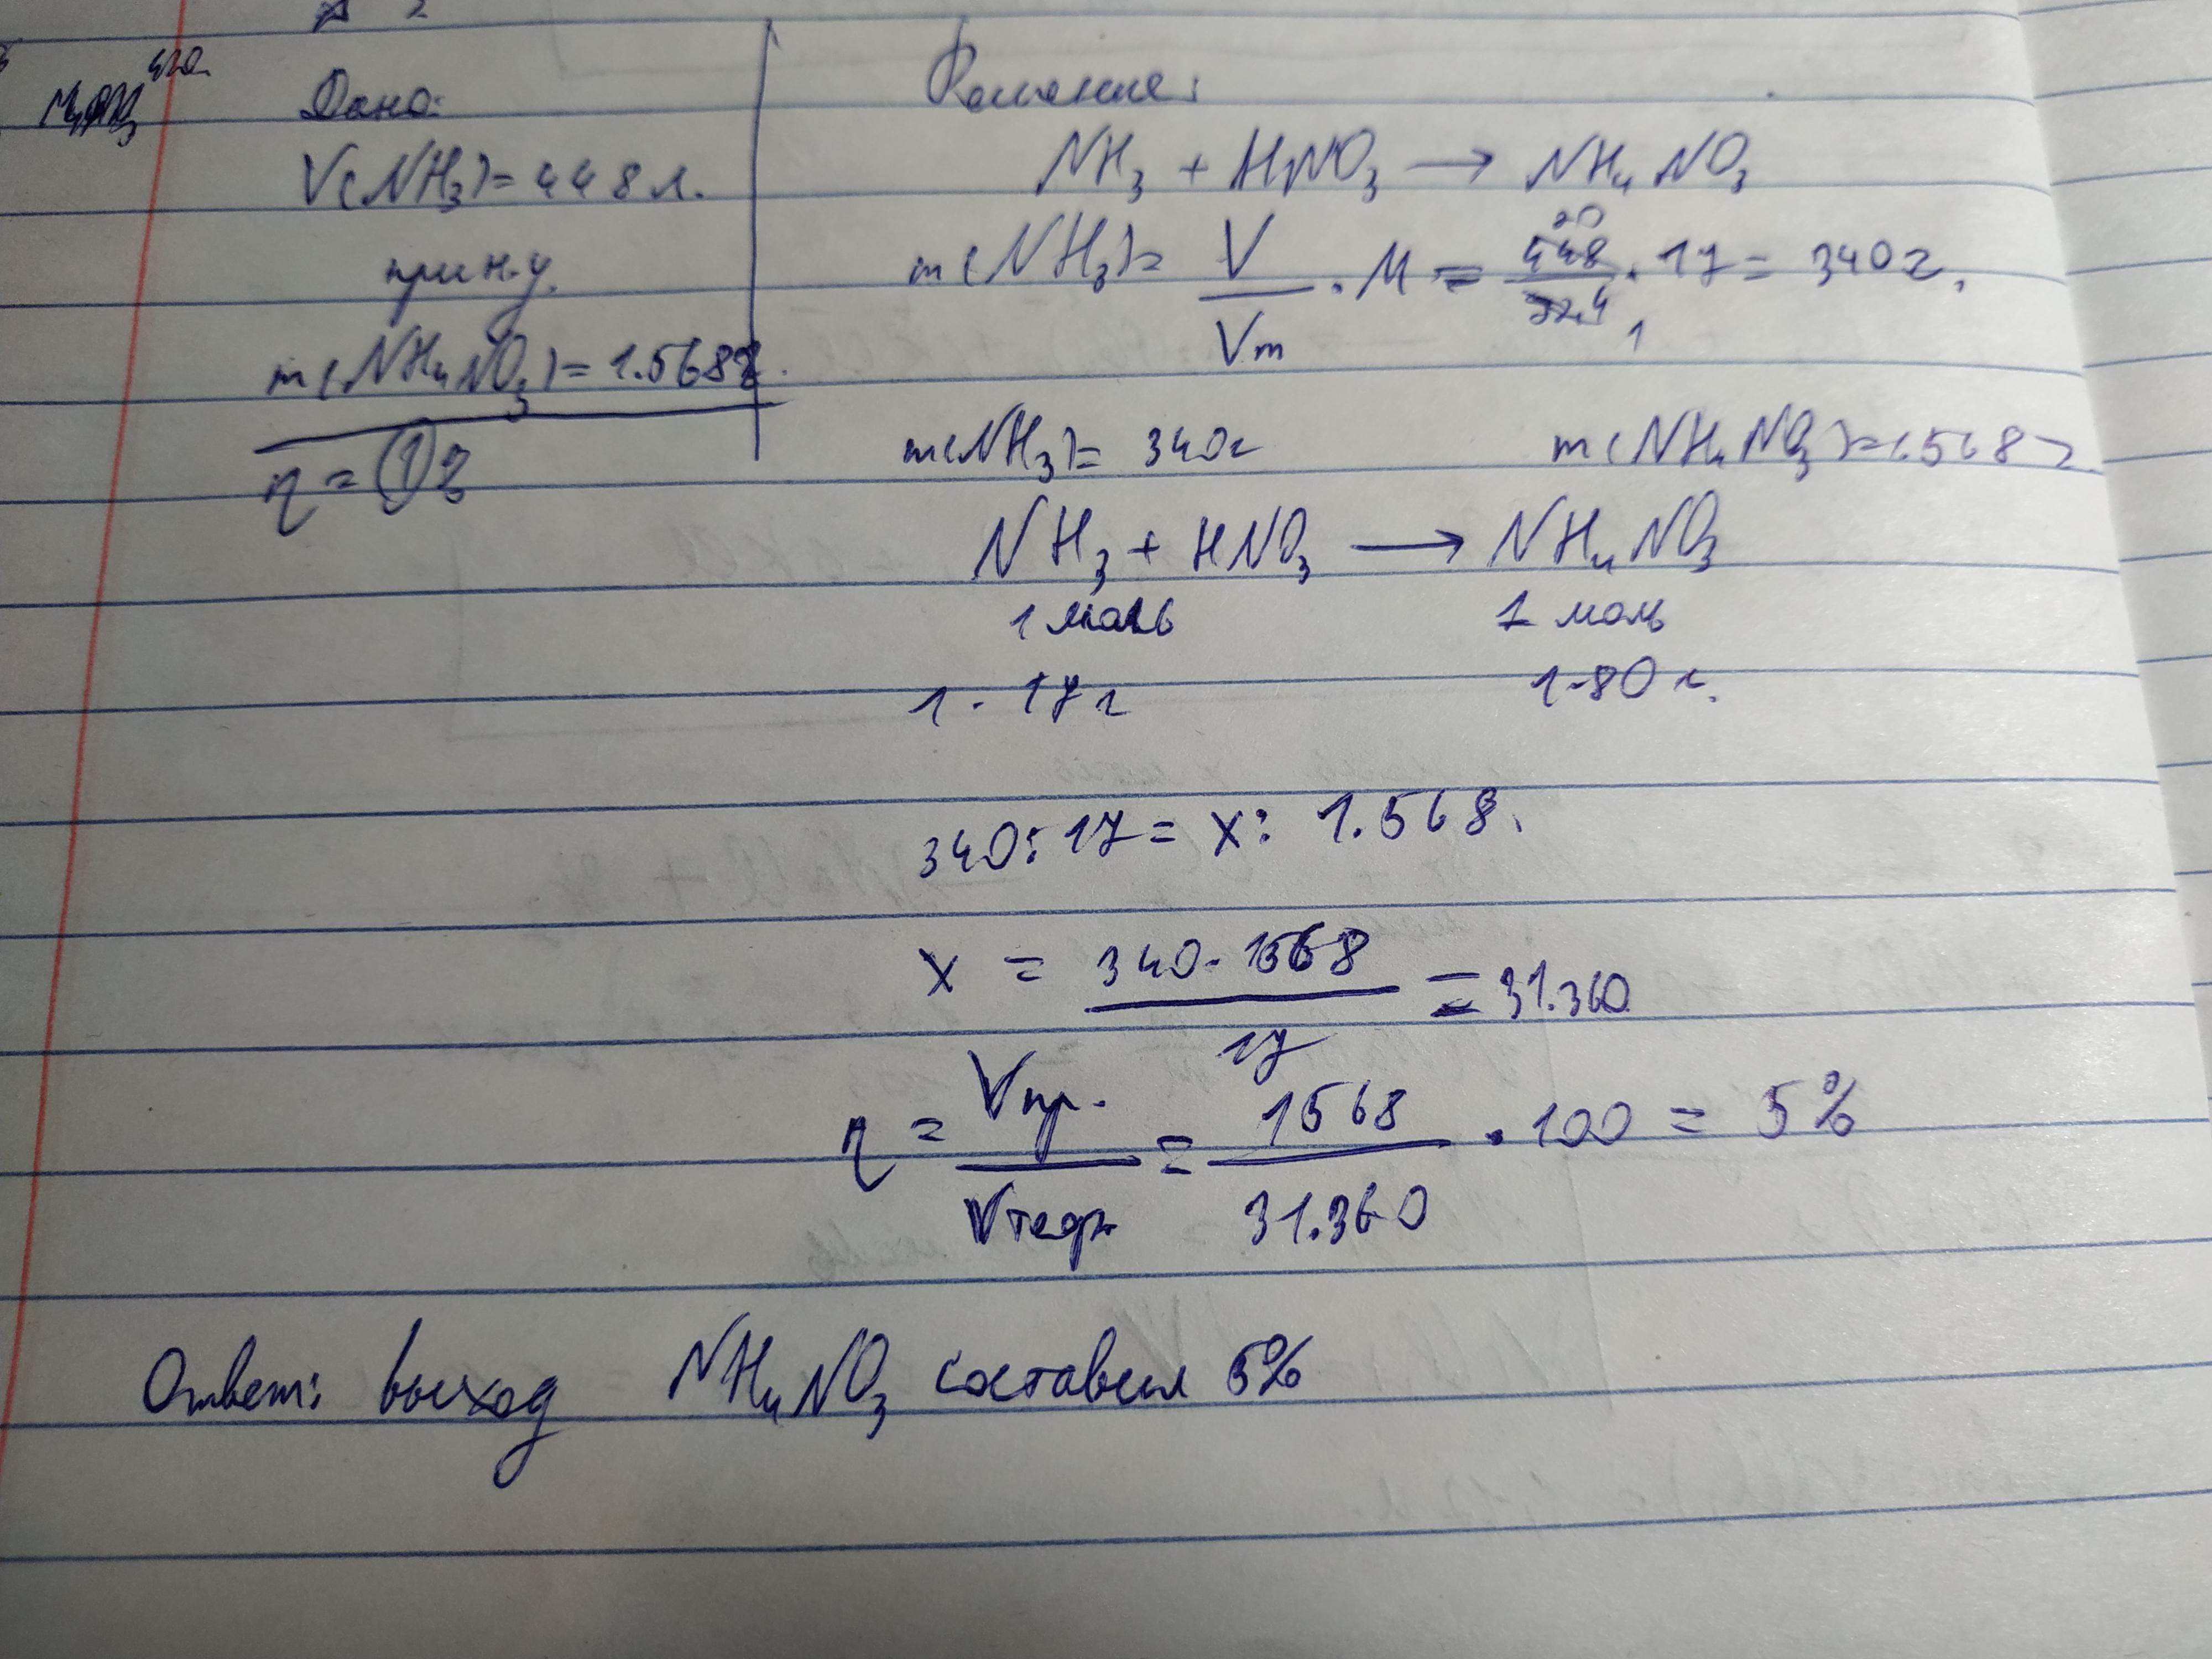 Дано:
V(NH₃)=448л.
при н.у.
m(NH₄NO₃)=1.568г.
η = ①?
Решение:
NH₃ + HNO₃ → NH₄NO₃
m(NH₃)= V/Vm · M = 448/22,4 · 17 = 340г.
20
1
m(NH₃)= 340г m(NH₄NO₃)=1.568г
NH₃ + HNO₃ → NH₄NO₃
1 моль 1 моль
1 · 17г 1·80г.
340:17 = x: 1.568.
x = 340·1568/17 = 31.360
η = Vпр./Vтеор. = 1568/31.360 · 100 = 5%
Ответ: выход NH₄NO₃ составил 5%